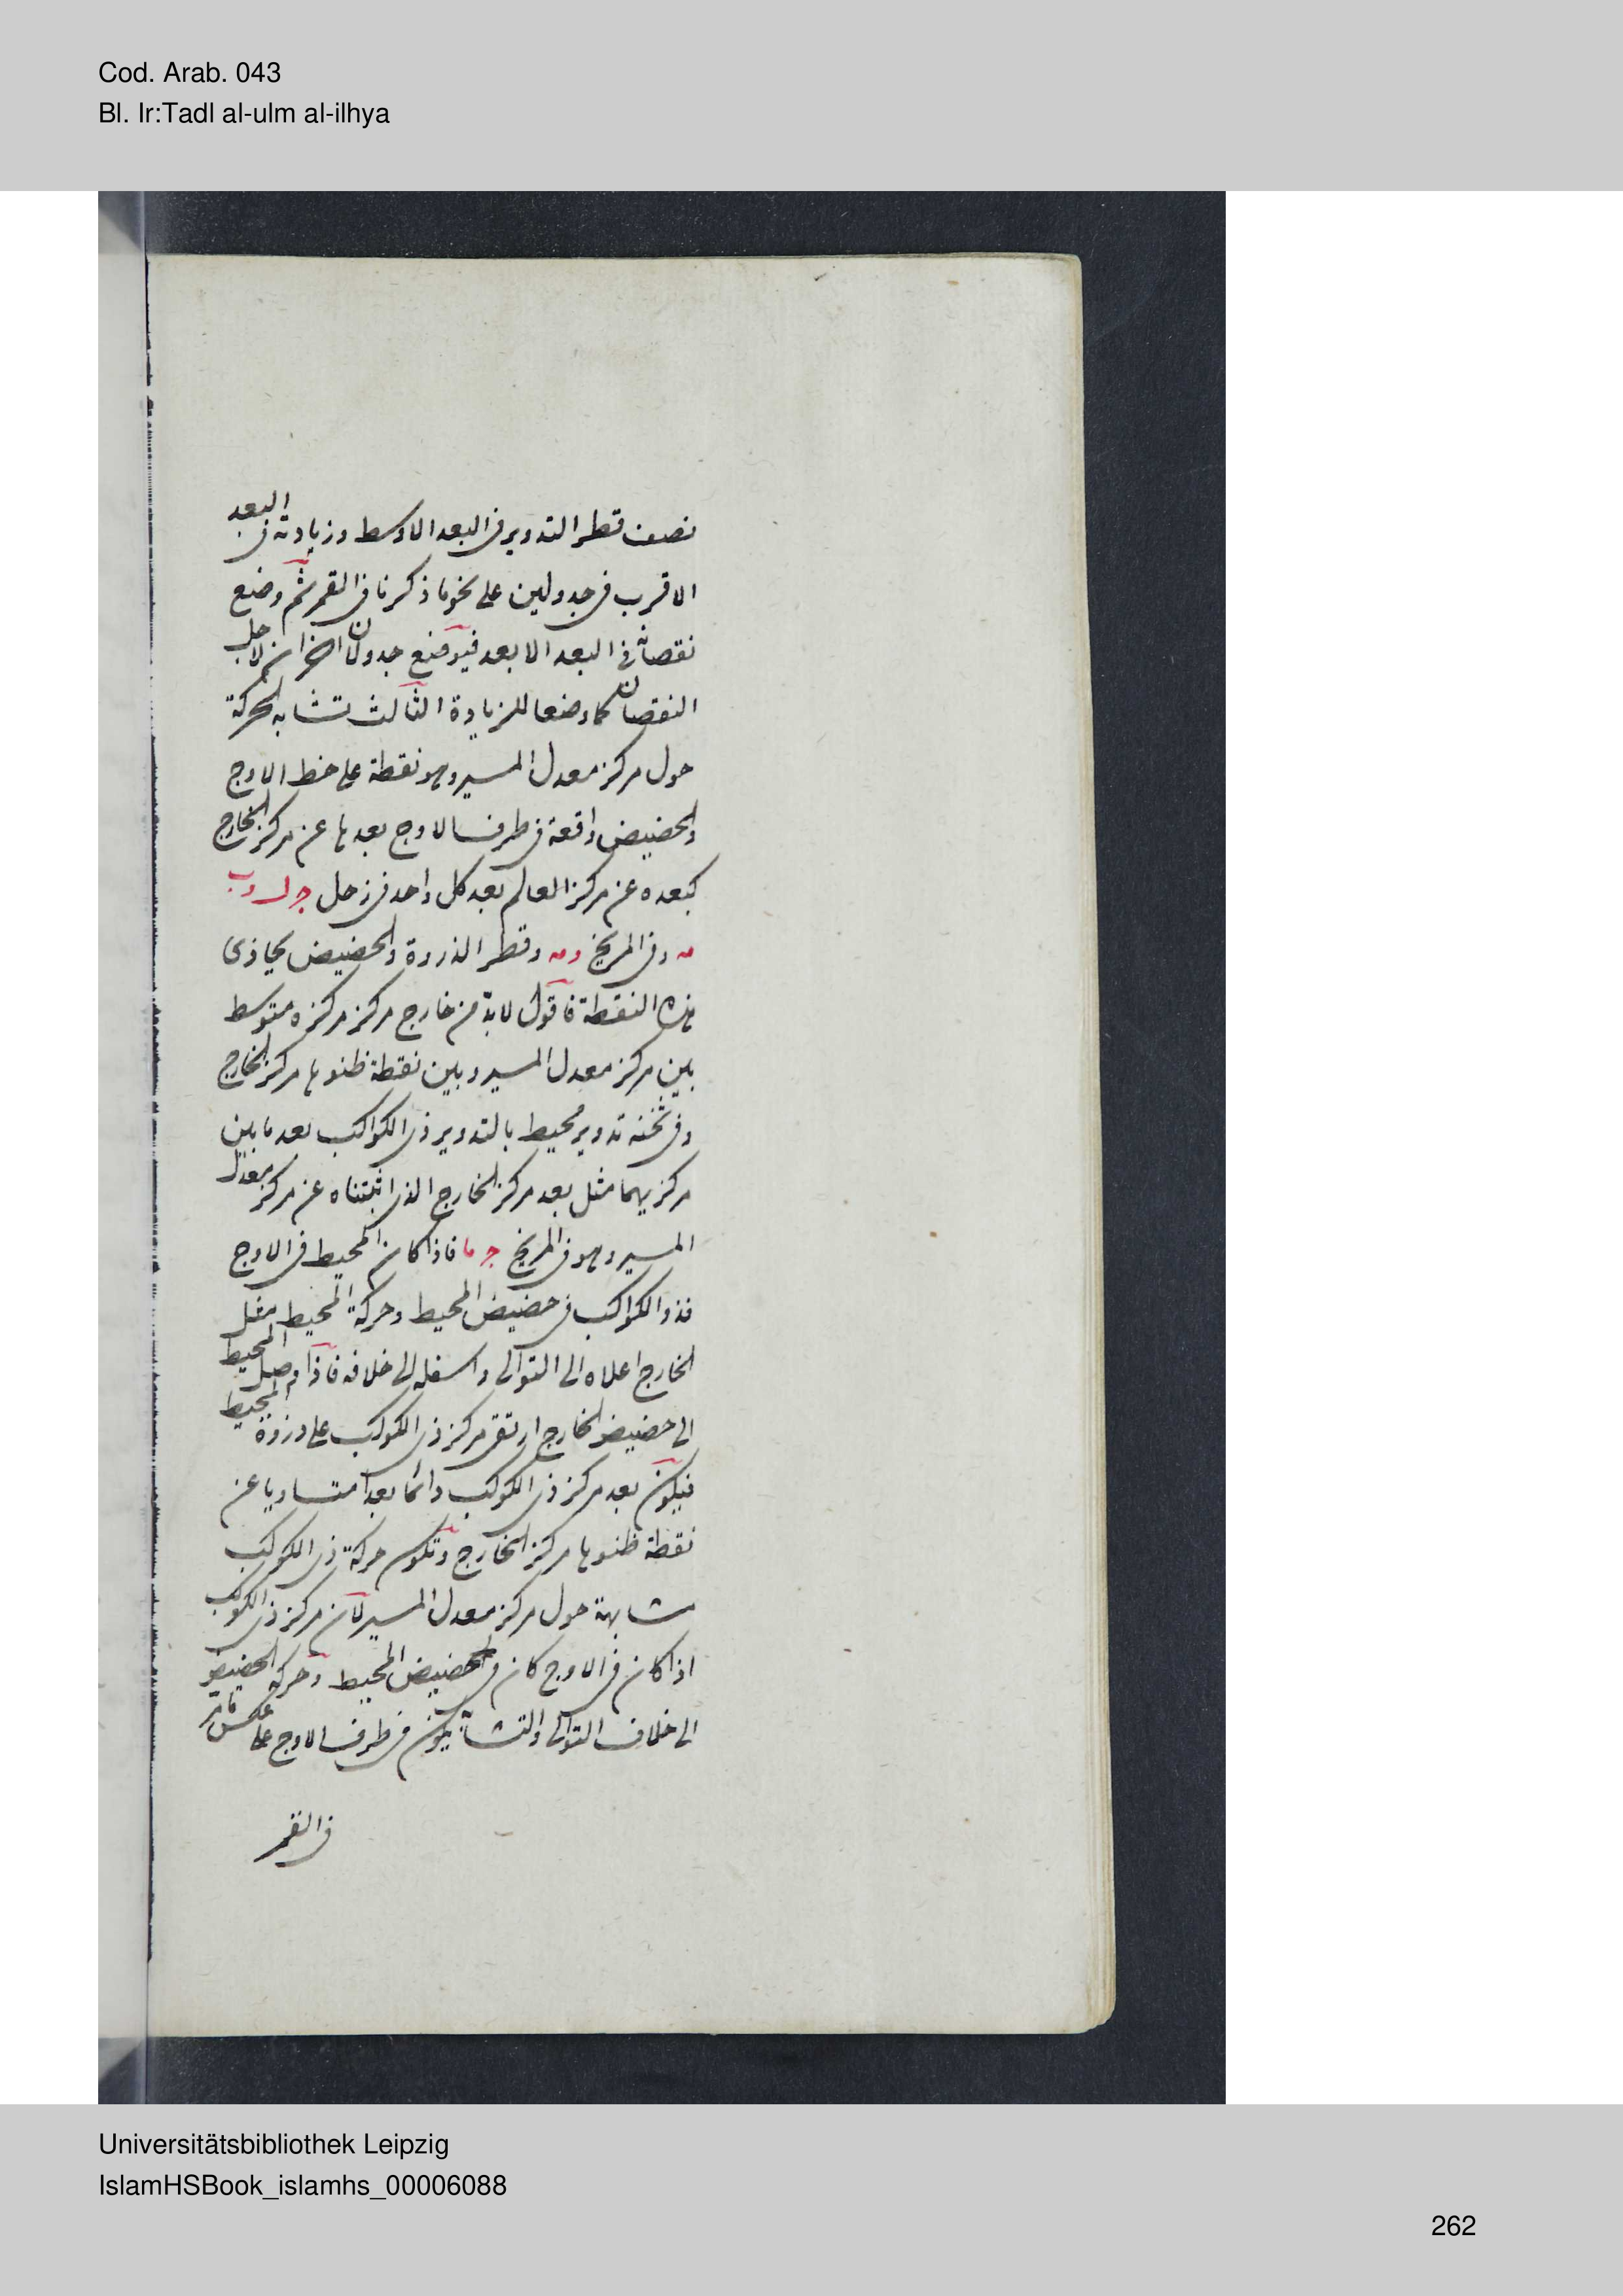 Cod. Arab. 043
Bl. Ir:Tadl al-ulm al-ilhya
نصف قطر التدوير فى البعد الاوسط وزيادته فى البعد
الاقرب فى جدولين على نحو ما ذكرنا فى القمر ثم وضع
نقصانه فى البعد الابعد فيوضع جدولان اخران لاجل
النقصان كما وضعا للزيادة الثالث تشابه الحركة
حول مركز معدل المسير وهو نقطة على خط الاوج
والحضيض واقعة فى طرف الاوج بعدها عن مركز الخارج
كبعده عن مركز العالم بعد كل واحد فى زحل
وفى المريخ وقطر الذروة والحضيض يحاذى
هذه النقطة فاقول لابد من خارج مركز مركزه متوسط
بين مركز معدل المسير وبين نقطة ظنوها مركز الخارج
وفى ثخنه تدوير محيط بالتدوير ذى الكواكب بعد ما بين
مركزيهما مثل بعد مركز الخارج الذى اثبتناه عن مركز معدل
المسير وهو فى المريخ فاذا كان المحيط فى الاوج
فذو الكواكب فى حضيض المحيط وحركة المحيط مثل
الخارج اعلاه الى التوالى واسفله الى خلافه فاذا وصل المحيط
الى حضيض الخارج ارتقى مركز ذى الكوكب على ذروة المحيط
فيكون بعد مركز ذى الكوكب دائما بعدا متساويا عن
نقطة ظنوها مركز الخارج وتكون حركة ذى الكوكب
متشابهة حول مركز معدل المسير لان مركز ذى الكوكب
اذا كان فى الاوج كان فى الحضيض المحيط وحركة الحضيض
الى خلاف التوالى والتشابه يكون فى طرف الاوج على عكس ما مر
فى القمر
Universitätsbibliothek Leipzig
IslamHSBook_islamhs_00006088
262